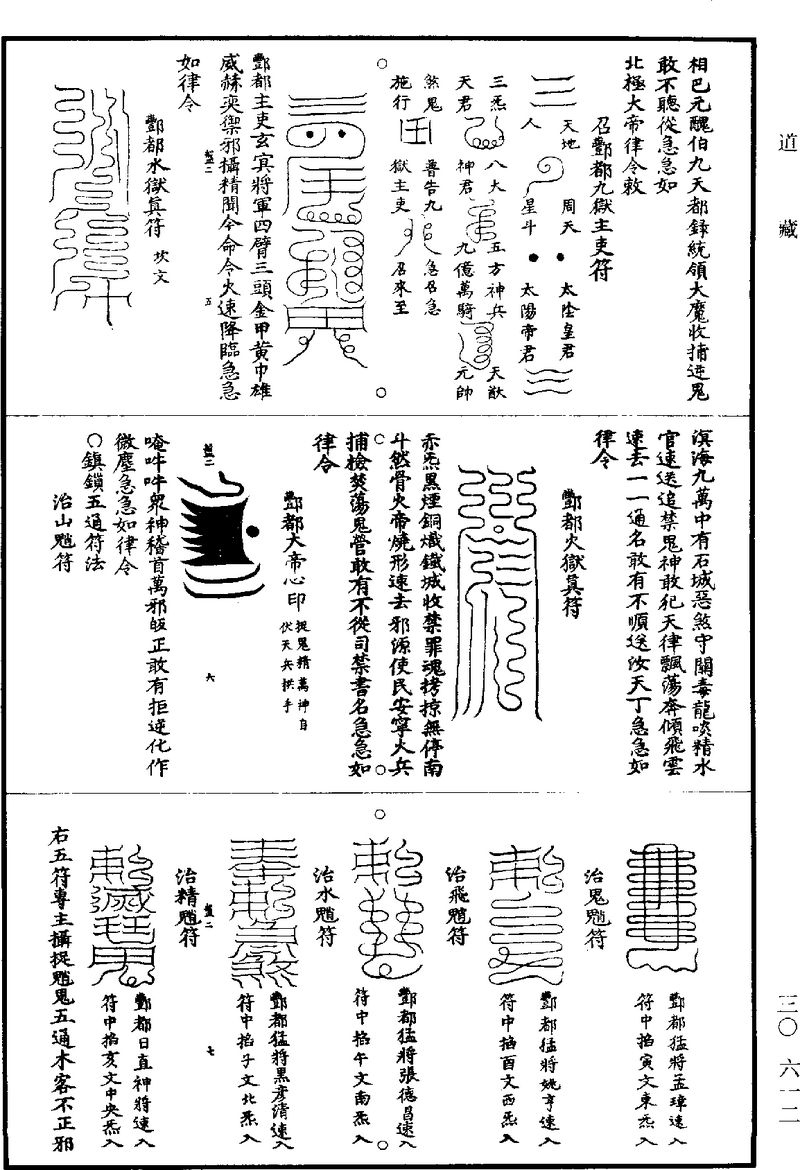 道藏
三〇 六一二
相巴元醜伯九天都錄統領大魔收捕逆鬼
敢不聽從急急如
北極大帝律令敕
召酆都九獄主吏符
天地 周天 太陰皇君
人 星斗 太陽帝君
三炁 八大 五方神兵 天猷
天君 神君 九億萬騎 元帥
煞鬼 普告九 急召急
施行 獄主吏 召來至
酆都主吏玄冥將軍四臂三頭金甲黃巾雄
威赫奕禦邪攝精聞今命令火速降臨急急
如律令
五
酆都水獄真符 坎文
溟海九萬中有石城惡煞守關毒龍啖精水
官速送追禁鬼神敢犯天律飄蕩奔傾飛雲
速去一一通名敢有不順送汝天丁急急如
律令
酆都火獄真符
赤炁黑煙銅熾鐵城收禁罪魂拷掠無停南
斗然骨火帝燒形速去邪源使民安寧火兵
捕檢焚蕩鬼營敢有不從司禁書名急急如
律令
酆都大帝心印 捉鬼精萬神自
伏天兵拱手
六
唵吽吽眾神稽首萬邪皈正敢有拒逆化作
微塵急急如律令
○鎮鎖五通符法
治山魈符
酆都猛將孟璋速入
符中掐寅文東炁入
治鬼魈符
酆都猛將姚亨速入
符中掐酉文西炁入
治飛魈符
酆都猛將張德昌速入
符中掐午文南炁入
治水魈符
酆都猛將黑彥清速入
符中掐子文北炁入
七
治精魈符
酆都日直神將速入
符中掐亥文中央炁入
右五符專主攝捉魈鬼五通木客不正邪